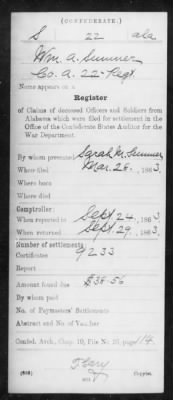 (CONFEDERATE.)
S 22 Ala
Wm. A. Sumner
Co. A. 22 Regt.
Name appears on a
Register
of Claims of deceased Officers and Soldiers from
Alabama which were filed for settlement in the
Office of the Confederate States Auditor for the
War Department.
By whom presented Sarah M. Sumner
When filed Mar. 28, 1863.
Where born
Where died
Comptroller:
When reported to Sept 24, 1863.
When returned Sept 29, 1863.
Number of settlement:
Certificate 9233
Report
Amount found due $38.56
By whom paid
No. of Paymasters' Settlements
Abstract and No. of Voucher
Confed. Arch., Chap. 10, File No. 26, page 114.
Copyist.